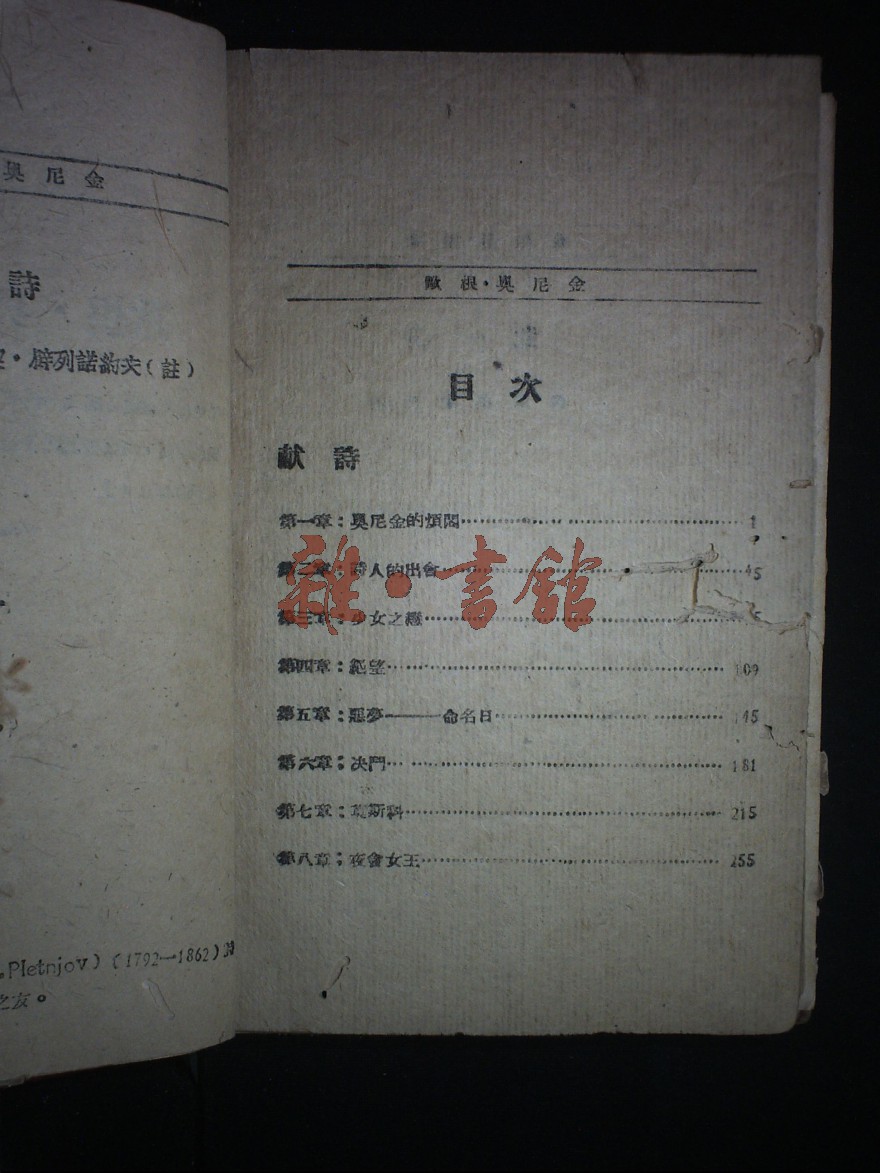 奧尼金
詩
·辟列諾約夫（註）
,Pletnjov) (1792—1862)
之友。
歐根·奧尼金
目次
献詩
第一章：奧尼金的煩悶 1
第二章：詩人的出會 45
第三章：少女之戀
第四章：絕望 109
第五章：惡夢——命名日 145
第六章：决鬥 181
第七章：莫斯科 215
第八章：夜會女王 255
雜·書館